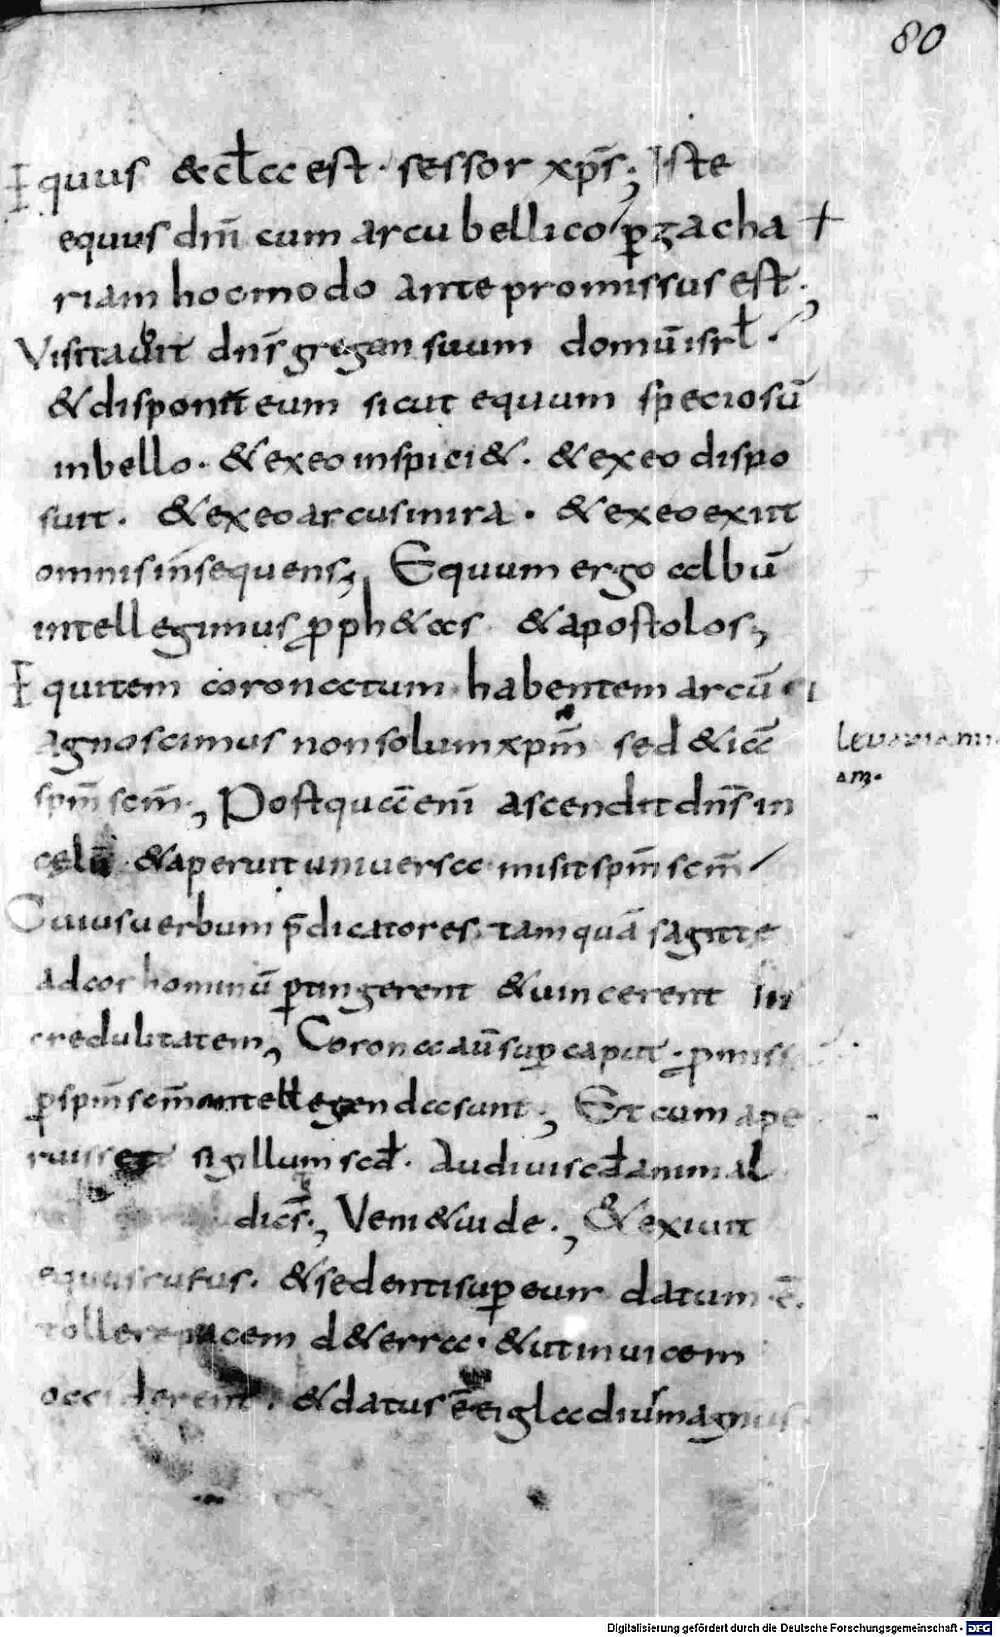 80
Equus & cł‾a est · sessor xp̄s; Iste
equus dn̄i cum arcu bellico p̱ zacha +
riam hoc modo ante promissus est ·,
Visitavit dn̄s gregen suum domū isrł ·
& disponit eum sicut equum speciosū
in bello · & ex eo inspici& · & ex eo dispo
suit · & ex eo arcus in ira · & ex eo exiit
omnis insequens, Equum ergo albū
intellegimus ꝓph&as & apostolos,
Equitem coronatum habentem arcū
agnoscimus non solum xpm̄ sed & iā
spm̄ scm̄ ·, Postquā enī ascendit dn̄s in
celū · & aperuit universa misit spm̄ scm̄
Cuius verbum p̄dicatores tamquā sagitte
ad cor hominū p̱tingerent & vincerent in
credulitatem, Corona aū sup̱ caput · ꝓmiss
p̱ spm̄ scm̄ intellegenda sunt ·, Et cum ape
ruisset sigillum scd̄ · Audivi scd̄ animal
dics̄ ·, Veni & vide ·, & exivit
equus rufus · & sedenti sup̱ eum datum ē ·
tollere pacem d& erra · & ut invicem
occiderent · & datus ē ei gladius magnus
levaviam
am ·
Digitalisierung gefördert durch die Deutsche Forschungsgemeinschaft - DFG